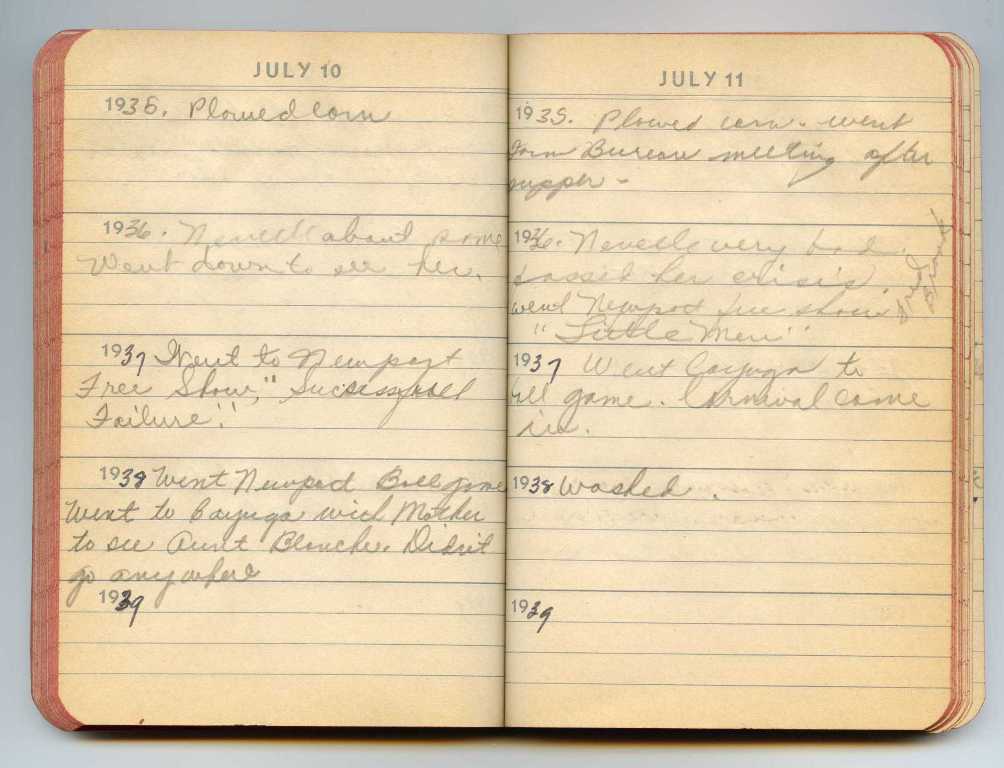 JULY 10
1935. Plowed corn
1936. about same
Went down to see her.
1937 Went to Newport
Free Show, "Successfull
Failure."
1938 Went Newport Ball game
Went to Cayuga with Mother
to see Aunt Blanche. Didn't
go anywhere
1939
JULY 11
1935. Plowed corn. went
Farm Bureau meeting after
supper -
1936. very bad.
Passed her crisis.
went Newport free show
"Little Men"
1937 Went Cayuga to
ball game. Carnival came
in.
1938 Washed.
1939